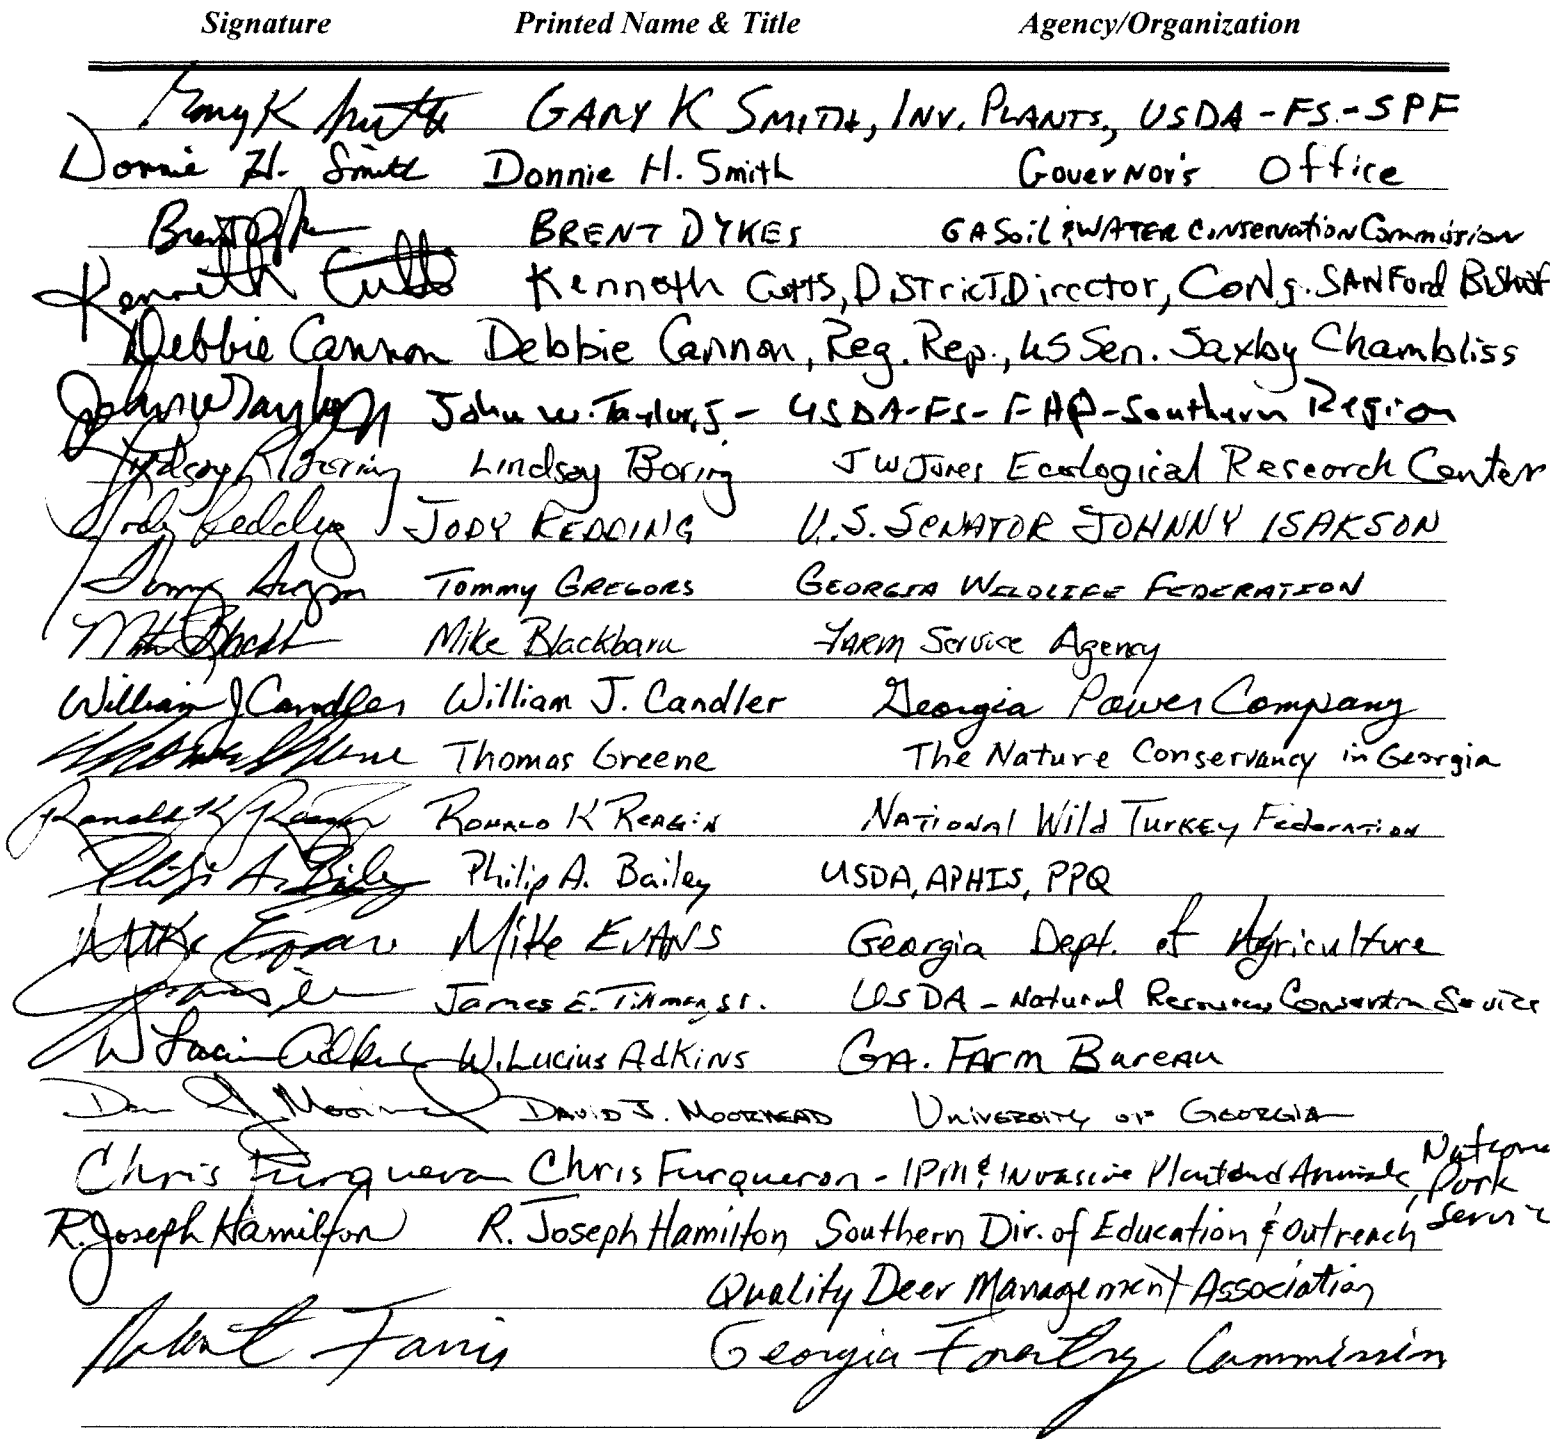 Signature Printed Name & Title Agency/Organization
Gary K Smith GARY K SMITH, INV. PLANTS, USDA-FS-SPF
Donnie H. Smith Donnie H. Smith Governor's Office
Brent Dykes BRENT DYKES GA Soil & WATER CONSERVATION Commission
Kenneth Cutts Kenneth Cutts, District Director, Cong. SANFord Bishop
Debbie Cannon Debbie Cannon, Reg. Rep., US Sen. Saxby Chambliss
John W Taylor John W. Taylor, - USDA-FS-FHP-Southern Region
Lindsay R Boring Lindsay Boring J W Jones Ecological Research Center
Jody Redding JODY REDDING U.S. SENATOR JOHNNY ISAKSON
Tommy Tommy GREGORS GEORGIA WILDLIFE FEDERATION
Mike Mike FARM Service Agency
William J Candler William J. Candler Georgia Power Company
Thomas Greene Thomas Greene The Nature Conservancy in Georgia
Ronald K Reagin RONALD K REAGIN NATIONAL Wild TURKEY Federation
Philip A. Bailey Philip A. Bailey USDA, APHIS, PPQ
Mike Evans Mike EVANS Georgia Dept. of Agriculture
James E. Tillman, Sr. USDA - Natural Resources Conservation Service
W Lucius Adkins W. Lucius Adkins GA. FARM Bureau
David J. Moorhead DAVID J. MOORHEAD UNIVERSITY OF GEORGIA
Chris Furqueron Chris Furqueron - IPM & Invasive Plant and Animals, National Park Service
R. Joseph Hamilton R. Joseph Hamilton Southern Dir. of Education & Outreach
Quality Deer Management Association
Robert Farris Georgia Forestry Commission